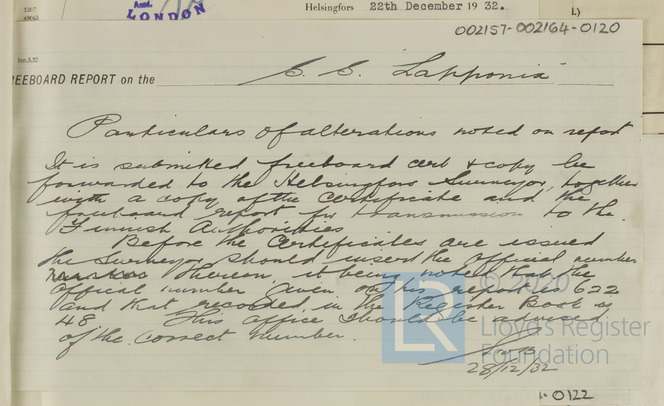 1267
Helsingfors 22th December 1932.
LONDON
002157-002164-0120
8m.5.32
REEBOARD REPORT on the S. S. "Lapponia"
Particulars of alterations noted on report
It is submitted freeboard cert & copy be
forwarded to the Helsingfors Surveyor, together
with a copy of the Certificate and the
freeboard report for transmission to the
Finnish Authorities
Before the Certificates are issued
the Surveyor should insert the official number
therein, it being noted that the
official number given on his report is 622
and that recorded in the Register Book is
48. This office should be advised
of the correct number.
28/12/32
© 2020
LR
Lloyd's Register
Foundation
0122